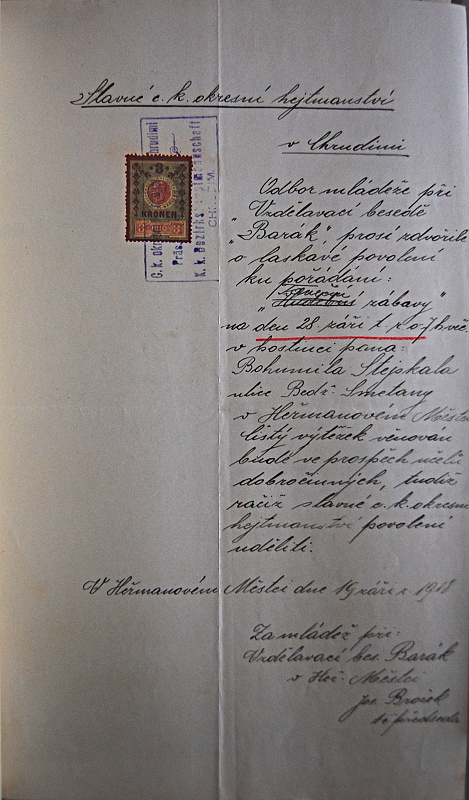 Slavné c. k. okresní hejtmanství
v Chrudimi
C. k. okr
K. k. Bezirks
3
KRONEN
Odbor mládeže při
Vzdělávací besedě
„Barák“, prosí zdvořile
o laskavé povolení
ku pořádání:
„ zábavy“
na den 28. září t. r. o 7 h več.
v hostinci pana:
Bohumila Stejskala
ulice Bedř. Smetany
v Heřmanovém Městci
čistý výtěžek věnován
bude ve prospěch účelů
dobročinných, tudíž
račiž slavné c. k. okresní
hejtmanství povolení
uděliti.
V Heřmanovém Městci dne 19 září r. 1918
Za mládež při:
Vzdělávací bes. Barák
v Heř. Městci
Jos. Brožek
předseda